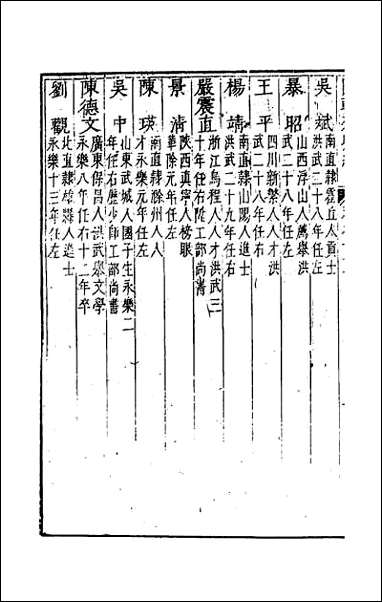 吳斌 南直隸霍丘人貢士
洪武二十八年任左
暴昭 山西浮山人薦舉洪
武二十八年任左
王平 四川新繁人人才洪
武二十八年任右
楊靖 南直隸山陽人進士
洪武二十九年任右
嚴震直 浙江烏程人人才洪武三
十年任右陞工部尚書
景清 陝西真寧人榜眼
革除元年任左
陳瑛 南直隸滁州人人
才永樂元年任左
吳中 山東武城人國子生永樂二
年任右歷少師工部尚書
陳德文 廣東保昌人洪武舉文學
永樂八年任右十二年卒
劉觀 北直隸雄縣人進士
永樂十三年任左